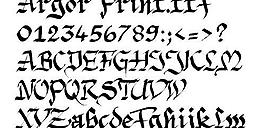 Argor Priht.ttf
0123456789:;<=>?
ABCDEFGHIJKLM
NOPQRSTUVW
XYZabcdefghijklm